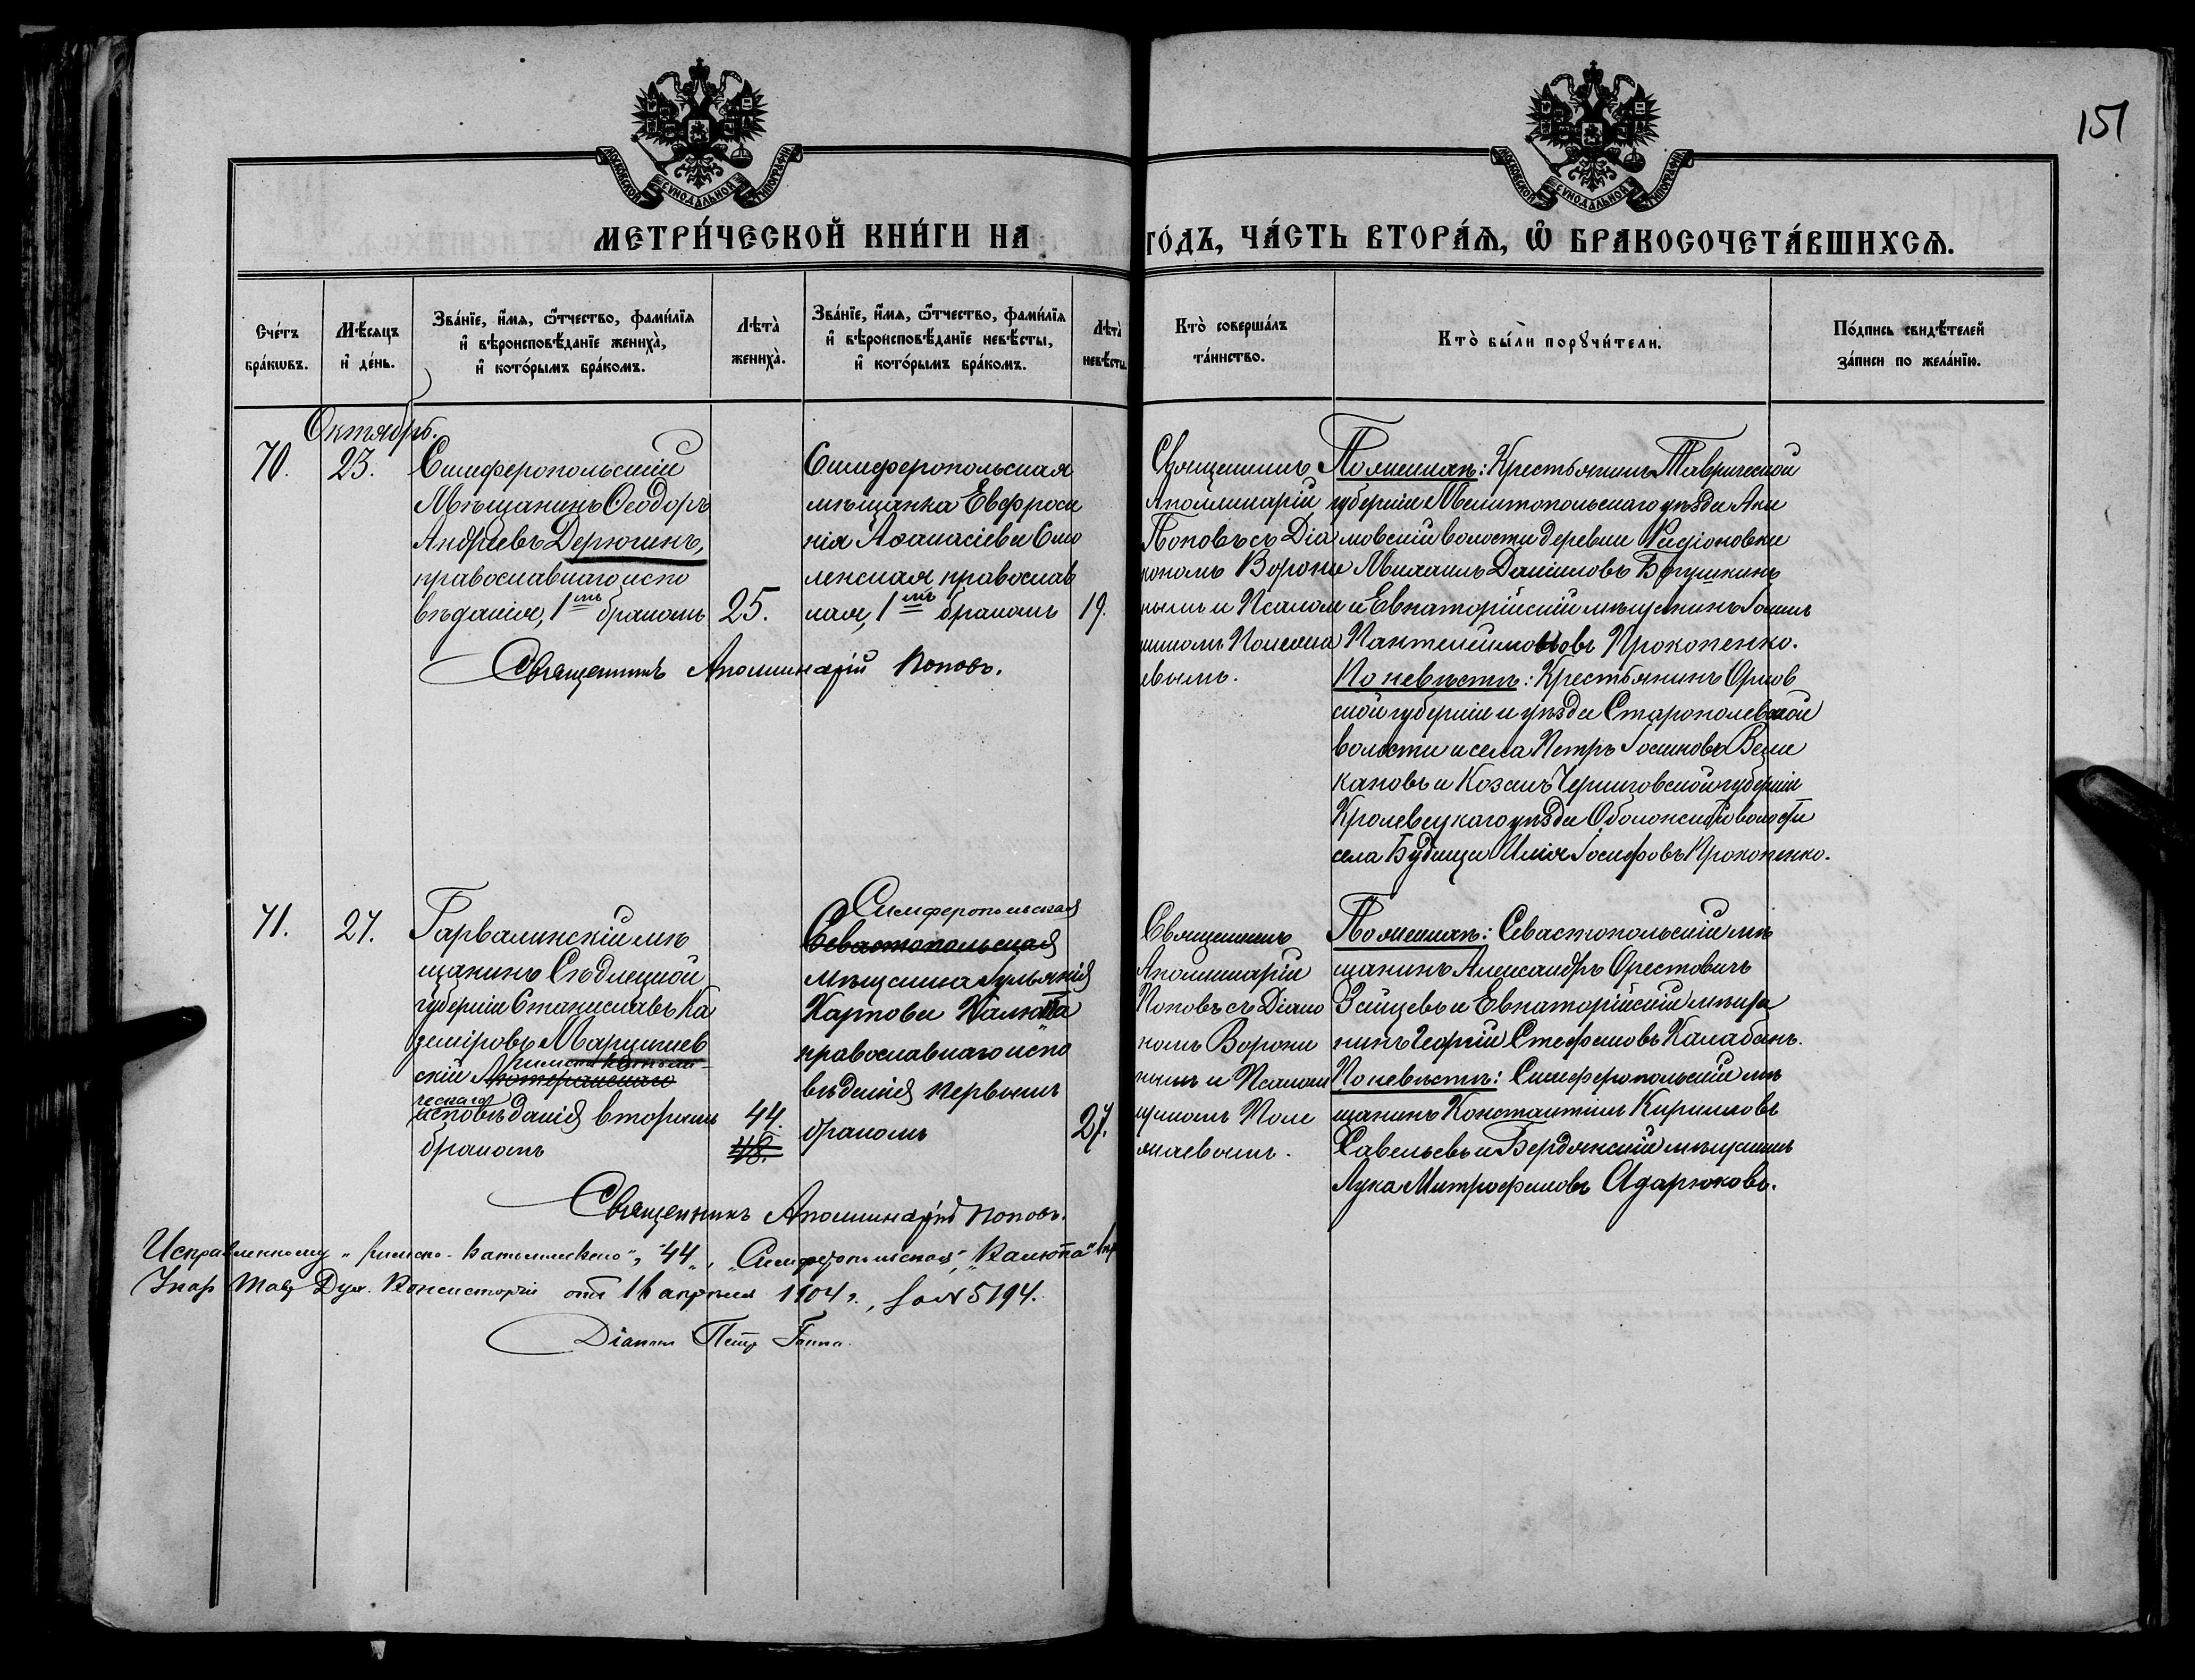 151
МОСКОВСКОЙ СѴНОДАЛЬНОЙ ТИПОГРАФІИ
МОСКОВСКОЙ СѴНОДАЛЬНОЙ ТИПОГРАФІИ
МЕТРИ́ЧЕСКОЙ КНИ́ГИ НА ГО́ДЪ, ЧА́СТЬ ВТОРА́Ѧ, Ѽ БРАКОСОЧЕТА́ВШИХСѦ.
Сче́тъ
бра́кѡвъ.
Мѣ́сѧцъ
и҆ де́нь.
Зва́нїе, и҆́мѧ, ѻ҆́тчество, фами́лїѧ
и҆ вѣроисповѣ́данїе жениха̀,
и҆ кото́рымъ бра́комъ.
Лѣта̀
жениха̀.
Зва́нїе, и҆́мѧ, ѻ҆́тчество, фами́лїѧ
и҆ вѣроисповѣ́данїе невѣ́сты,
и҆ кото́рымъ бра́комъ.
Лѣта̀
невѣ́сты.
Кто̀ соверша́лъ
та́инство.
Кто̀ бы́ли порꙋчи́тели.
По́дпись свидѣ́телей
за́писи по жела́нїю.
Октябрь.
70.
23.
Симферопольскій
Мѣщанинъ Ѳеодоръ
Андреевъ Дерюгинъ,
православнаго испо
вѣданія, 1мъ бракомъ
25.
Симферопольская
мѣщанка Евфроси
нія Аѳанасіева Смо
ленская православ
ная, 1мъ бракомъ
19.
Священникъ
Аполлинарій
Поповъ съ Діа
кономъ Ворони
нымъ и Псалом
щикомъ
евымъ.
По женихѣ: Крестьянинъ Таврической
губерніи Мелитопольскаго уѣзда Аки
мовской волости деревни Родіоновки
Михаилъ Даніиловъ Богушкинъ
и Евпаторійскій мѣщанинъ
Пантелеимоновъ Прокопенко.
По невѣстѣ: Крестьянинъ Орлов
ской губерніи и уѣзда
волости и села Петръ
кановъ и Козакъ Черниговской губерніи
Кролевецкаго уѣзда Оболонской волости
села Будищи Илія Іосифовъ Прокопенко.
Священникъ Аполлинарій Поповъ.
71.
27.
Гарвалинскій мѣ
щанинъ Сѣдлецкой
губерніи Станиславъ Ка
земіровъ
римско-католи-
скій Лютеранскаго
ческаго
исповѣданія вторымъ
бракомъ
44.
48.
Симферопольская
Севастопольская
мѣщанка Іуліанія
Карпова Калюта
православнаго испо
вѣданія первымъ
бракомъ
27.
Священникъ
Аполлинарій
Поповъ съ Діако
номъ Ворони
нымъ и Псалом
щикомъ
По женихѣ: Севастопольскій мѣ
щанинъ Александръ Орестовичъ
Зайцевъ и Евпаторійскій мѣща
нинъ Георгій Стефановъ Калабанъ.
По невѣстѣ: Симферопольскій мѣ
щанинъ Константинъ Кирилловъ
Савельевъ и Бердянскій мѣщанинъ
Лука Митрофановъ Адарюковъ.
Священникъ Аполлинарій Поповъ.
Исправленному „римско-католическаго“, „44“, „Симферопольская“, „Калюта“
Указ Тавр. Дух. Консисторіи отъ 16 апрѣля 1904 г., за № 5194.
Діаконъ Петр